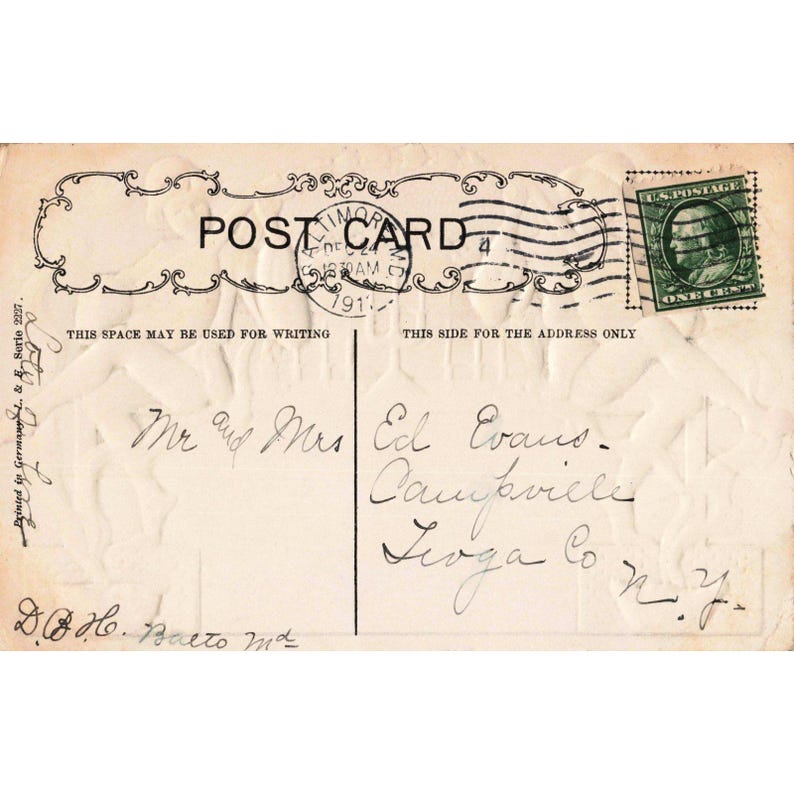 POST CARD
BALTIMORE, MD.
DEC 24
12 30 AM
1911
4
U.S. POSTAGE
ONE CENT
THIS SPACE MAY BE USED FOR WRITING
THIS SIDE FOR THE ADDRESS ONLY
Printed in Germany, L. & E. Serie 2227.
Lots of Love
Mr and Mrs Ed Evans.
Campville
Tioga Co
N.Y.
D.B.H. Balto Md